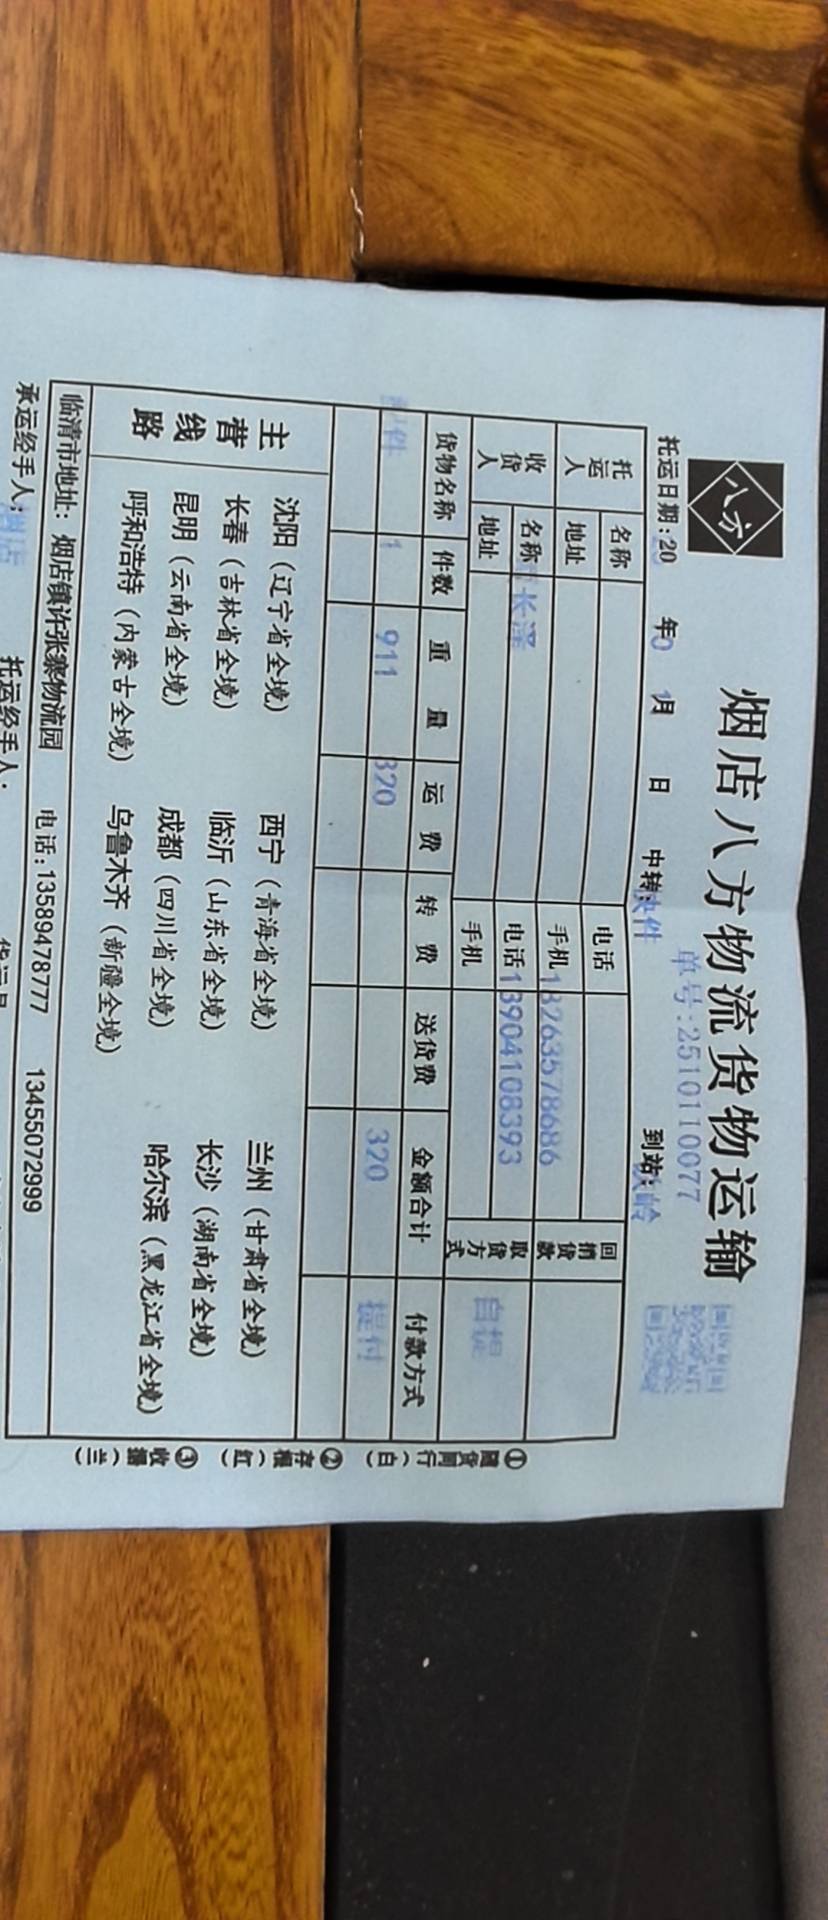 八方
烟店八方物流货物运输
单号:2510110077
托运日期:20 年 月 日 中转:快件 到站:铁岭
托运人 名称 电话 回捎货款
地址 手机 13263578686
收货人 名称 长泽 电话 13904108393 取货方式 自提
地址 手机
货物名称 件数 重量 运费 转费 送货费 金额合计 付款方式
件 1 911 320 320 提付
主营线路
沈阳（辽宁省全境） 西宁（青海省全境） 兰州（甘肃省全境）
长春（吉林省全境） 临沂（山东省全境） 长沙（湖南省全境）
昆明（云南省全境） 成都（四川省全境） 哈尔滨（黑龙江省全境）
呼和浩特（内蒙古全境） 乌鲁木齐（新疆全境）
临清市地址：烟店镇许张寨物流园 电话:13589478777 13455072999
承运经手人: 托运经手人:
①随货同行（白） ②存根（红） ③收据（兰）